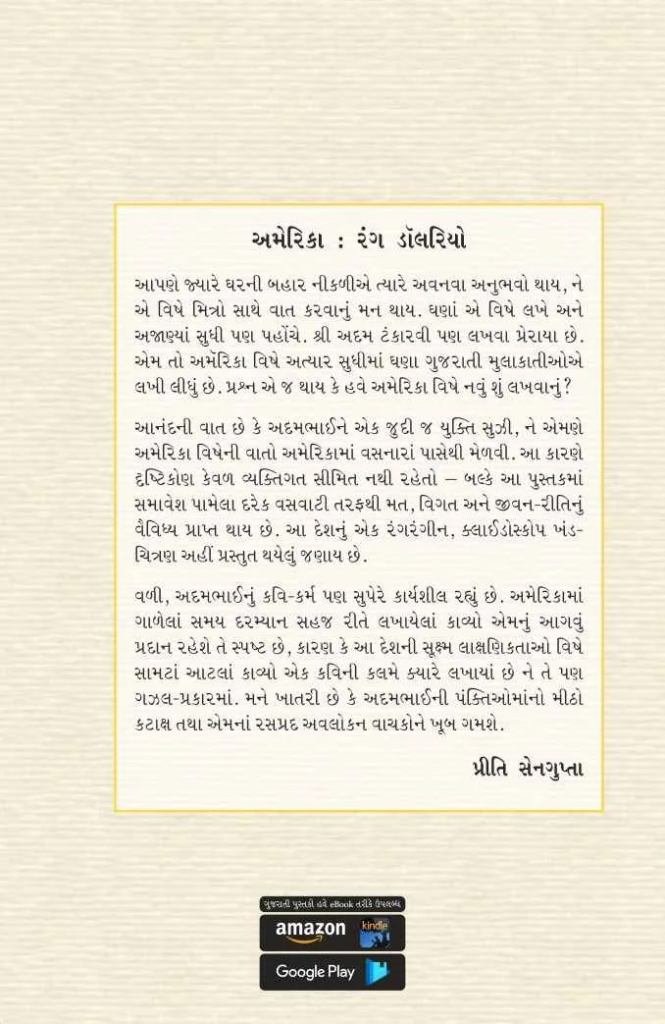 અમેરિકા : રંગ ડૉલરિયો
આપણે જ્યારે ઘરની બહાર નીકળીએ ત્યારે અવનવા અનુભવો થાય, ને
એ વિષે મિત્રો સાથે વાત કરવાનું મન થાય. ઘણાં એ વિષે લખે અને
અજાણ્યાં સુધી પણ પહોંચે. શ્રી અદમ ટંકારવી પણ લખવા પ્રેરાયા છે.
એમ તો અમેરિકા વિષે અત્યાર સુધીમાં ઘણા ગુજરાતી મુલાકાતીઓએ
લખી લીધું છે. પ્રશ્ન એ જ થાય કે હવે અમેરિકા વિષે નવું શું લખવાનું?
આનંદની વાત છે કે અદમભાઈને એક જુદી જ યુક્તિ સુઝી, ને એમણે
અમેરિકા વિષેની વાતો અમેરિકામાં વસનારાં પાસેથી મેળવી. આ કારણે
દૃષ્ટિકોણ કેવળ વ્યક્તિગત સીમિત નથી રહેતો – બલ્કે આ પુસ્તકમાં
સમાવેશ પામેલા દરેક વસવાટી તરફથી મત, વિગત અને જીવન-રીતિનું
વૈવિધ્ય પ્રાપ્ત થાય છે. આ દેશનું એક રંગરંગીન, ક્લાઈડોસ્કોપ ખંડ-
ચિત્રણ અહીં પ્રસ્તુત થયેલું જણાય છે.
વળી, અદમભાઈનું કવિ-કર્મ પણ સુપેરે કાર્યશીલ રહ્યું છે. અમેરિકામાં
ગાળેલાં સમય દરમ્યાન સહજ રીતે લખાયેલાં કાવ્યો એમનું આગવું
પ્રદાન રહેશે તે સ્પષ્ટ છે, કારણ કે આ દેશની સૂક્ષ્મ લાક્ષણિકતાઓ વિષે
સામટાં આટલાં કાવ્યો એક કવિની કલમે ક્યારે લખાયાં છે ને તે પણ
ગઝલ-પ્રકારમાં. મને ખાતરી છે કે અદમભાઈની પંક્તિઓમાંનો મીઠો
કટાક્ષ તથા એમનાં રસપ્રદ અવલોકન વાચકોને ખૂબ ગમશે.
પ્રીતિ સેનગુપ્તા
ગુજરાતી પુસ્તકો હવે eBook તરીકે ઉપલબ્ધ
amazon kindle
Google Play